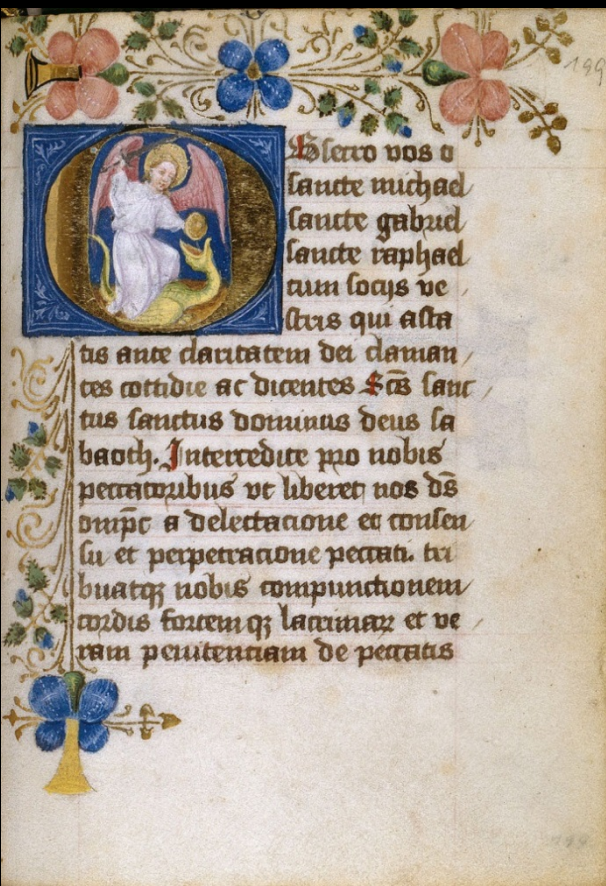 199
Obsecro vos o
sancte michael
sancte gabriel
sancte raphael
cum socijs ve
stris qui asta
tis ante claritatem dei claman
tes cottidie ac dicentes Scs sanc
tus sanctus dominus deus sa
baoth. Intercedite pro nobis
peccatoribus vt liberet nos ds
omps a delectacione et consen
su et perpetracione peccati. tri
buatqz nobis compunctionem
cordis fontemqz lacrimarz et ve
ram penitenciam de peccatis
199